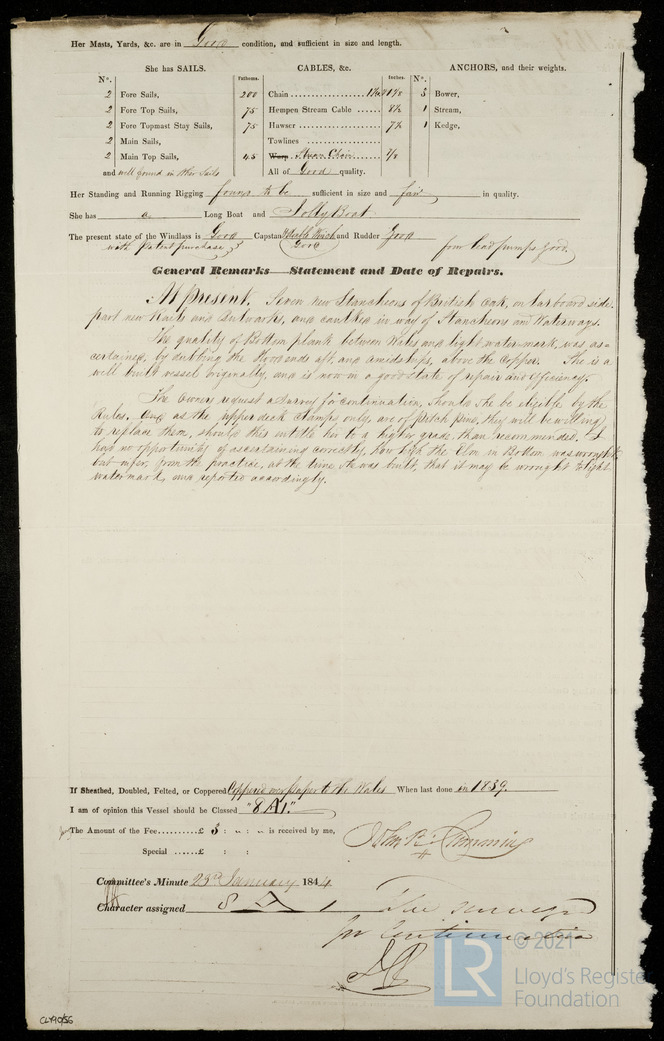 Her Masts, Yards, &c. are in Good condition, and sufficient in size and length.
She has SAILS.
N°.
2 Fore Sails,
2 Fore Top Sails,
2 Fore Topmast Stay Sails,
2 Main Sails,
2 Main Top Sails,
and well found in other Sails
CABLES, &c.
Fathoms. Inches.
200 Chain 1 1/8
75 Hempen Stream Cable 8½
75 Hawser 7½
Towlines
45 Warp Stream Chain 7/8
All of Good quality.
ANCHORS, and their weights.
N°.
3 Bower,
1 Stream,
1 Kedge,
Her Standing and Running Rigging found to be sufficient in size and fair in quality.
She has a Long Boat and Jolly Boat
The present state of the Windlass is Good Capstan Winch and Rudder Good
with patent purchase Good four lead pumps good.
General Remarks—Statement and Date of Repairs.
At present. Seven new Stancheons of British Oak, on larboard side.
part new Rails and Bulwarks, and caulked in way of Stancheons and Waterways.
The quality of Bottom plank between Wales and light water mark, was as-
certained, by dubbing the Hood ends aft, and amidships, above the Copper. She is a
well built vessel originally, and is now in a good state of repair and efficiency.
The Owners request a Survey for continuation, should she be eligible by the
Rules. And as the upper deck clamps only, are of pitch pine, they will be willing
to replace them, should this entitle her to a higher grade, than recommended. I
had no opportunity of ascertaining correctly, how high the Elm in Bottom was wrought,
but infer, from the practice, at the time she was built, that it may be wrought to light
watermark, and reported accordingly.
If Sheathed, Doubled, Felted, or Coppered Coppered over paper to the Wales When last done in 1839.
I am of opinion this Vessel should be Classed "8 A1."
The Amount of the Fee £ 3 : „ : „ is received by me,
Special £ : :
Committee's Minute 23rd January 1844
Character assigned 8 A 1
for Continuation
© 2021
LR
Lloyd's Register
Foundation